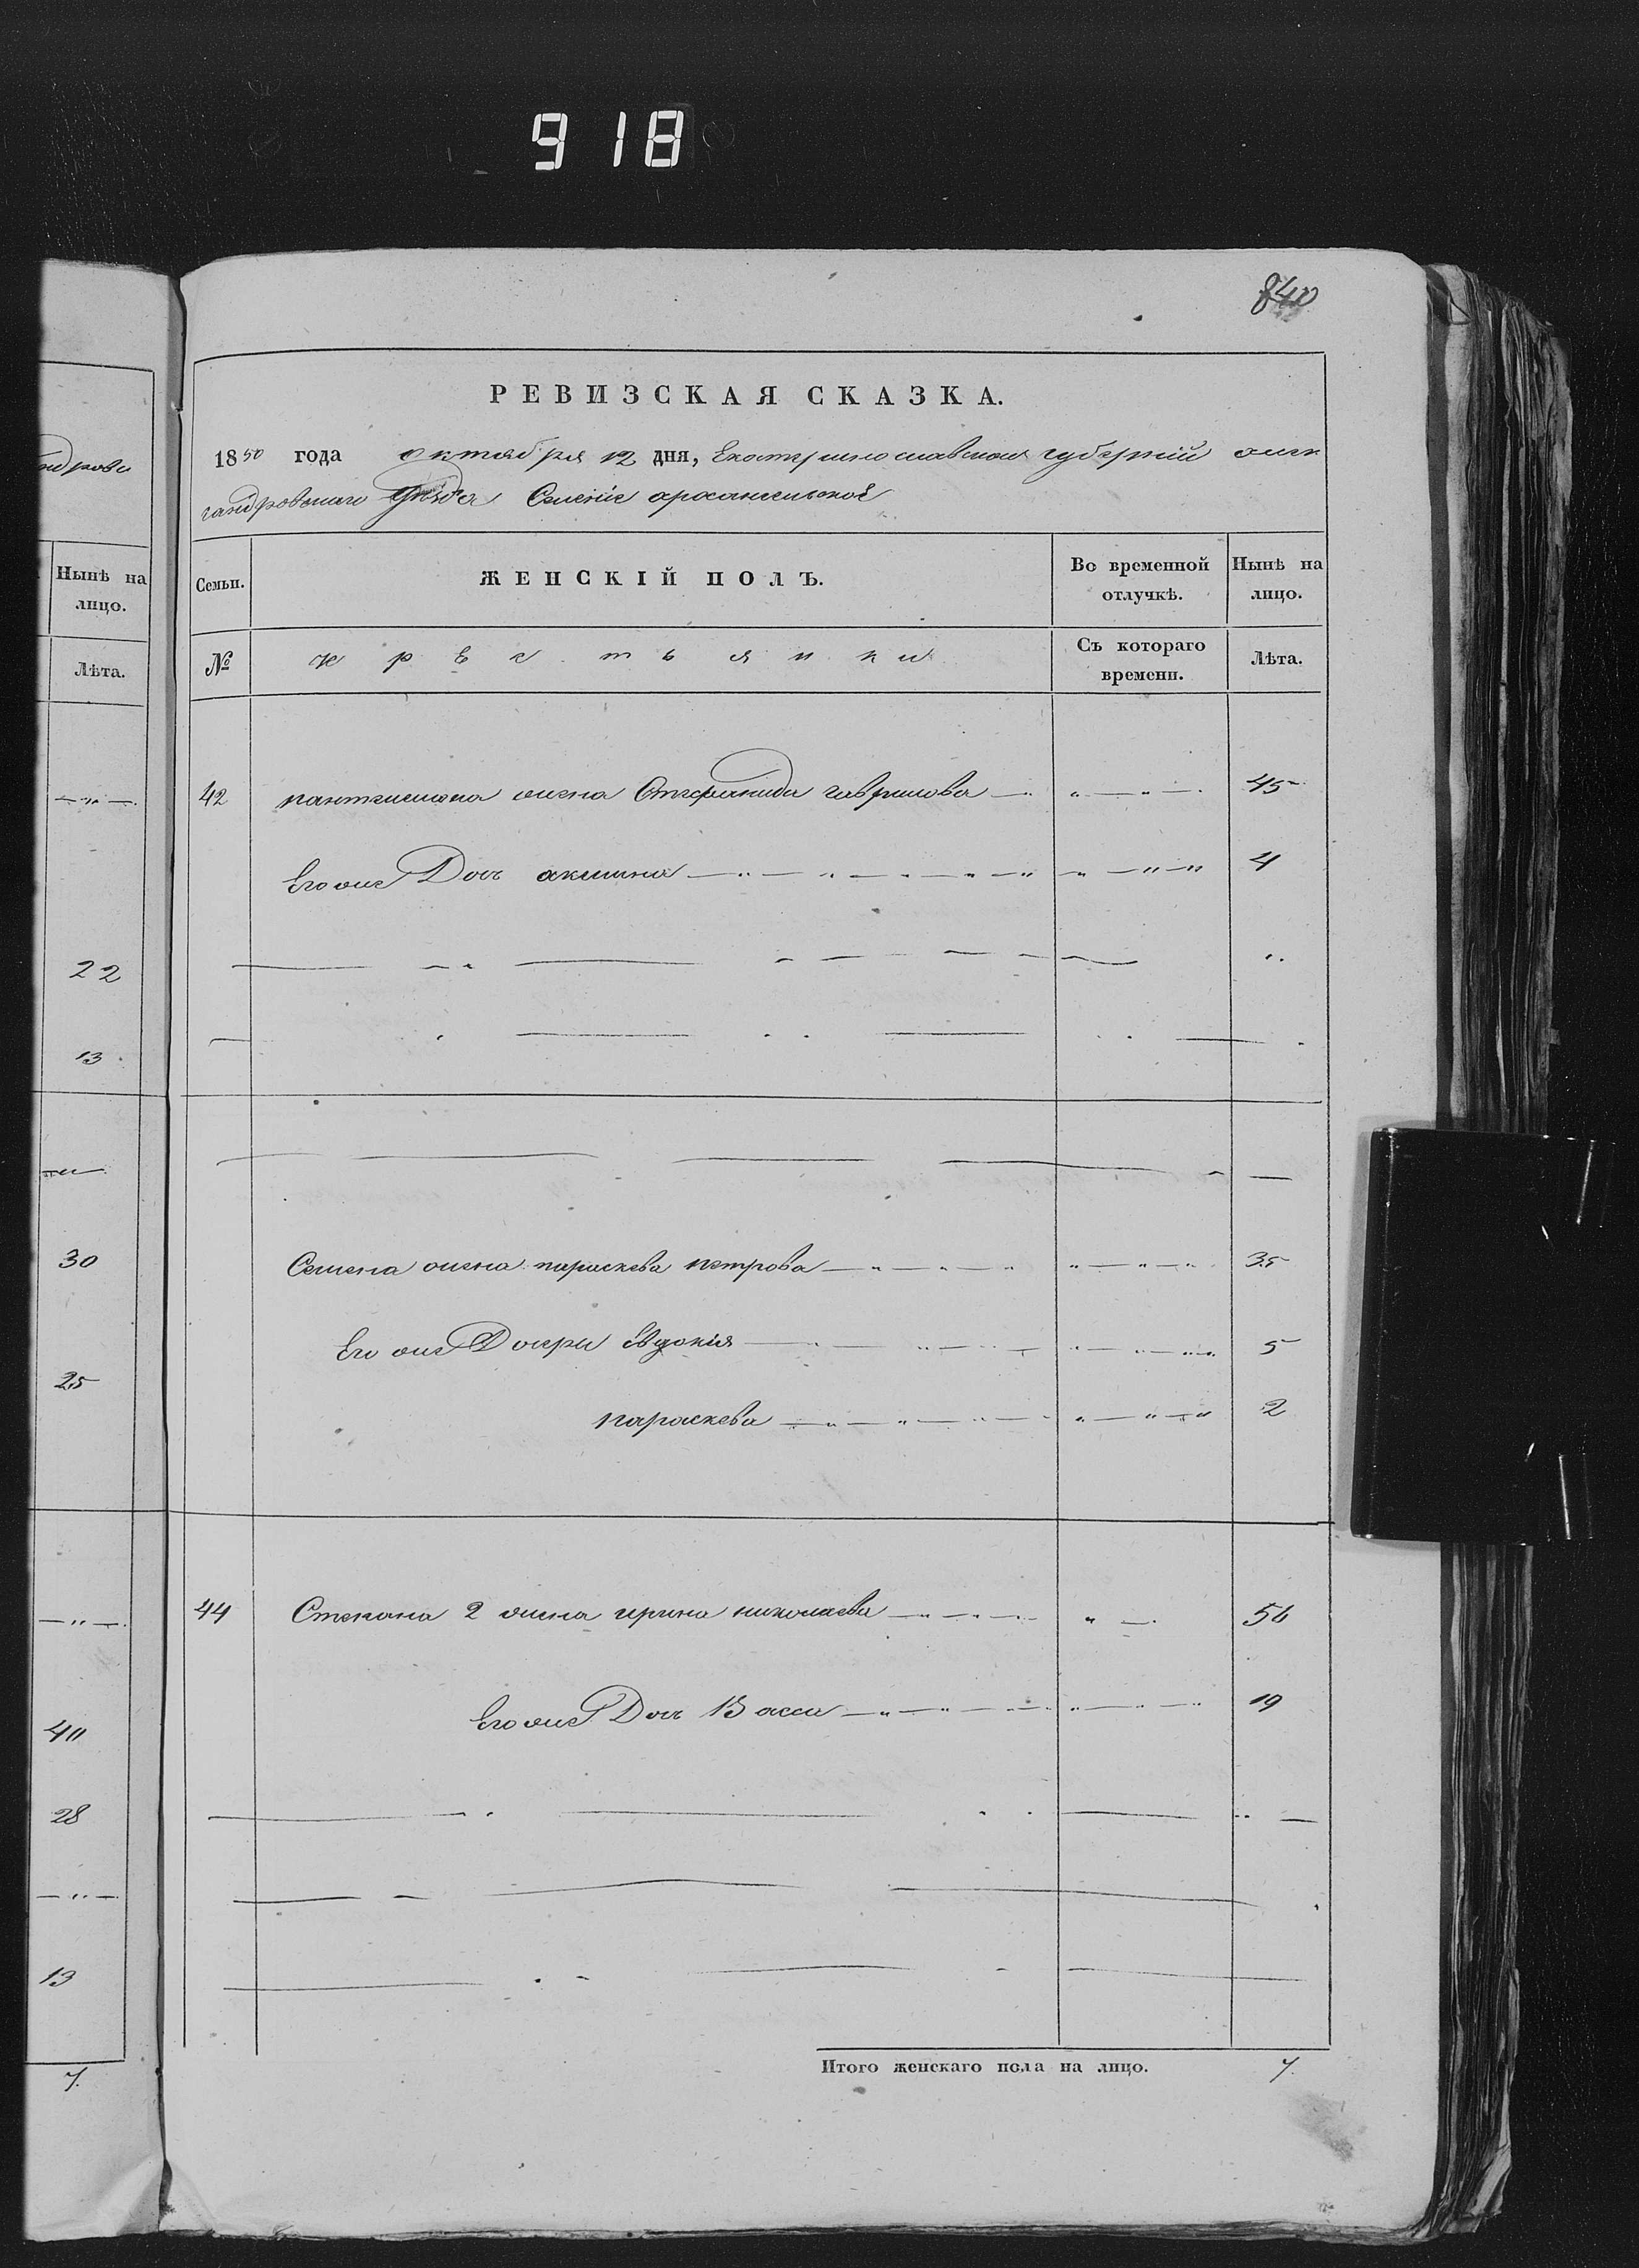 918
840
ндрово
РЕВИЗСКАЯ СКАЗКА.
1850 года октября 12 дня, Екатеринославской губерніи алек
сандровскаго Уѣзда Селеніе архангельское
Нынѣ на
лицо.
Лѣта.
Семьи.
ЖЕНСКІЙ ПОЛЪ.
Во временной
отлучкѣ.
Нынѣ на
лицо.
№
крестьянки
Съ котораго
времени.
Лѣта.
42 пантелимона жена Стефанида гаврилова 45
Его же Доч акилина 4
22
13
30
Семена жена параскева петрова 35
Его же Дочери Евдокія 5
25
параскева 2
44 Степана 2 жена ирина николаева 56
Его же Доч Васса 19
40
28
13
Итого женскаго пола на лицо. 7.
7.